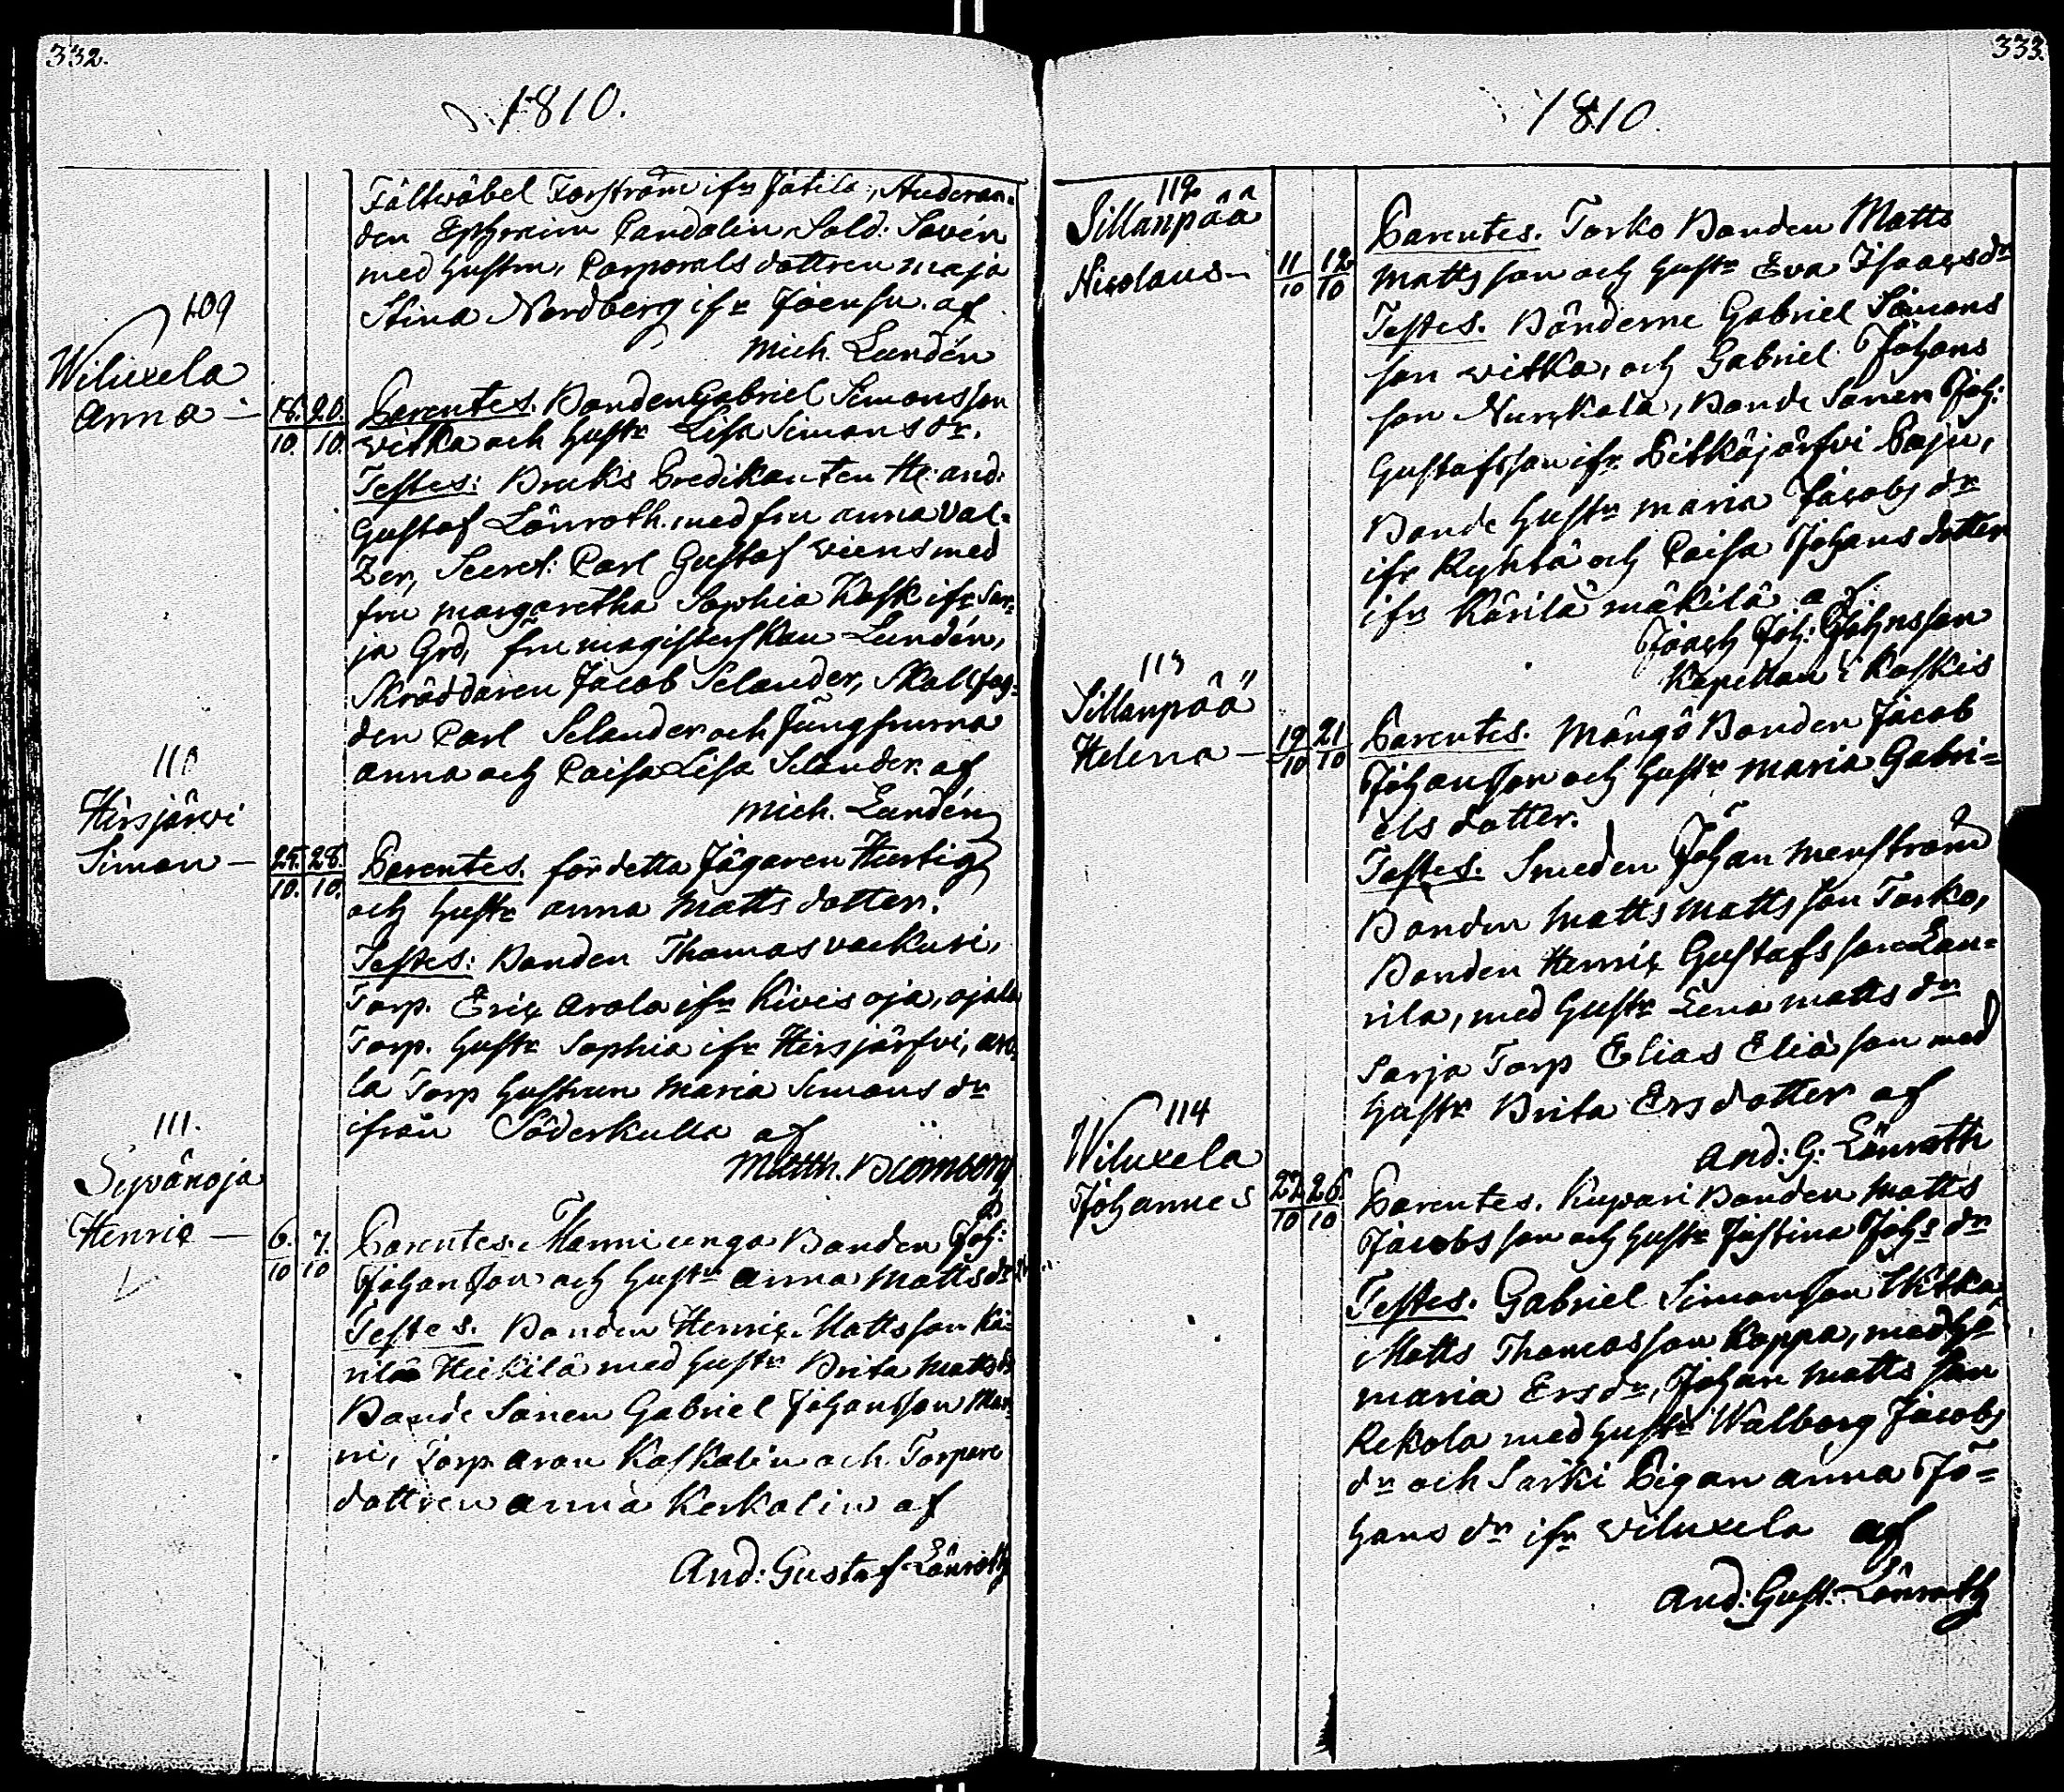 332.
1810.
Fältwäbel Forström ifn Jutila, Studeran-
den Ephraim Candolin Sold: Savén
med hustru, Corporals dottren Maja
Stina Nordberg ifr Joensu. af
Mich. Lundén
109
Wiluxela
Anna — 18./10. 20./10. Parentes. Bonden Gabriel Simonsson
witka och hustr Lisa Simons dr.
Testes: Bruks Predikanten H: And:
Gustaf Lönroth. med fru Anna Val-
zer, Secret: Carl Gustaf Wiens med
fru Margaretha Sophia Kask ifr Sar-
ja Grd, fru magisterskan Lundén,
Skräddaren Jacob Selander,
den Carl Selander och Jungfrurna
Anna och Caisa Lisa Selander. af
Mich. Lundén
110
Hirsjärvi
Simon — 25./10. 28./10. Parentes. för detta Jägaren Hurtig
och hustr Anna Mattsdotter.
Testes: Bonden Thomas vaekuri,
Torp. Eric Arola ifr Kivisoja, ojala
Torp. hustr Sophia ifr Hirsjärfvi, aro-
la Torp hustrun Maria Simons dr
ifrån Söderkulla af
Matth. Blomberg
111.
Syvänoja
Henric — 6./10 7./10 Parentes. Manni unga Bonden Joh:
Johansson och hustr Anna Matts dr
Testes. Bonden Henric Mattsson Kä-
rilä Heikilä med hustr Brita Matts dr
Bonde Sonen Gabriel Johansson Man-
ni, Torp Aron Kaskolin och Torpare
dottren Anna Keskolin af
And: Gustaf Lönroth
333.
1810.
112
Sillanpää
Nicolaus — 11/10 12/10 Parentes. Torko Bonden Matts
Mattsson och hustr Eva Isaacs dr
Testes. Bönderne Gabriel Simons
son witka, och Gabriel Johans
son Nurkkala, Bonde Sonen Joh:
Gustafsson ifr Pitkäjärfvi Paju,
Bonde hustr Maria Jacobs dr
ifr Ryhtä och Caisa Johansdotter
ifr Kärilä mäkilä af
Joh: Johnsson
Kapellan i Koskis
113
Sillanpää
Helena — 19/10 21/10 Parentes. Mängö Bonden Jacob
Johansson och hustr Maria Gabri-
els dotter.
Testes. Smeden Johan Menström
Bonden Matts Mattsson Torko,
Bonden Henric Gustafsson Lau-
rila, med hustr Lena Matts dr
Sarja Torp Elias Eliasson med
hustr Brita Ersdotter af
And: G: Lönroth
114
Wiluxela
Johannes 22/10 26./10 Parentes. Kupari Bonden Matts
Jacobsson och hustr Justina Johs dr
Testes. Gabriel Simonsson Witka,
Matts Thomasson Kappa, med hu
Maria Ersdr, Johan Mattsson
Rekola med hustr Walborg Jacobs
dr och Särki Pigan Anna Jo-
hans dr ifr Wiluxela af
And: Gust: Lönroth